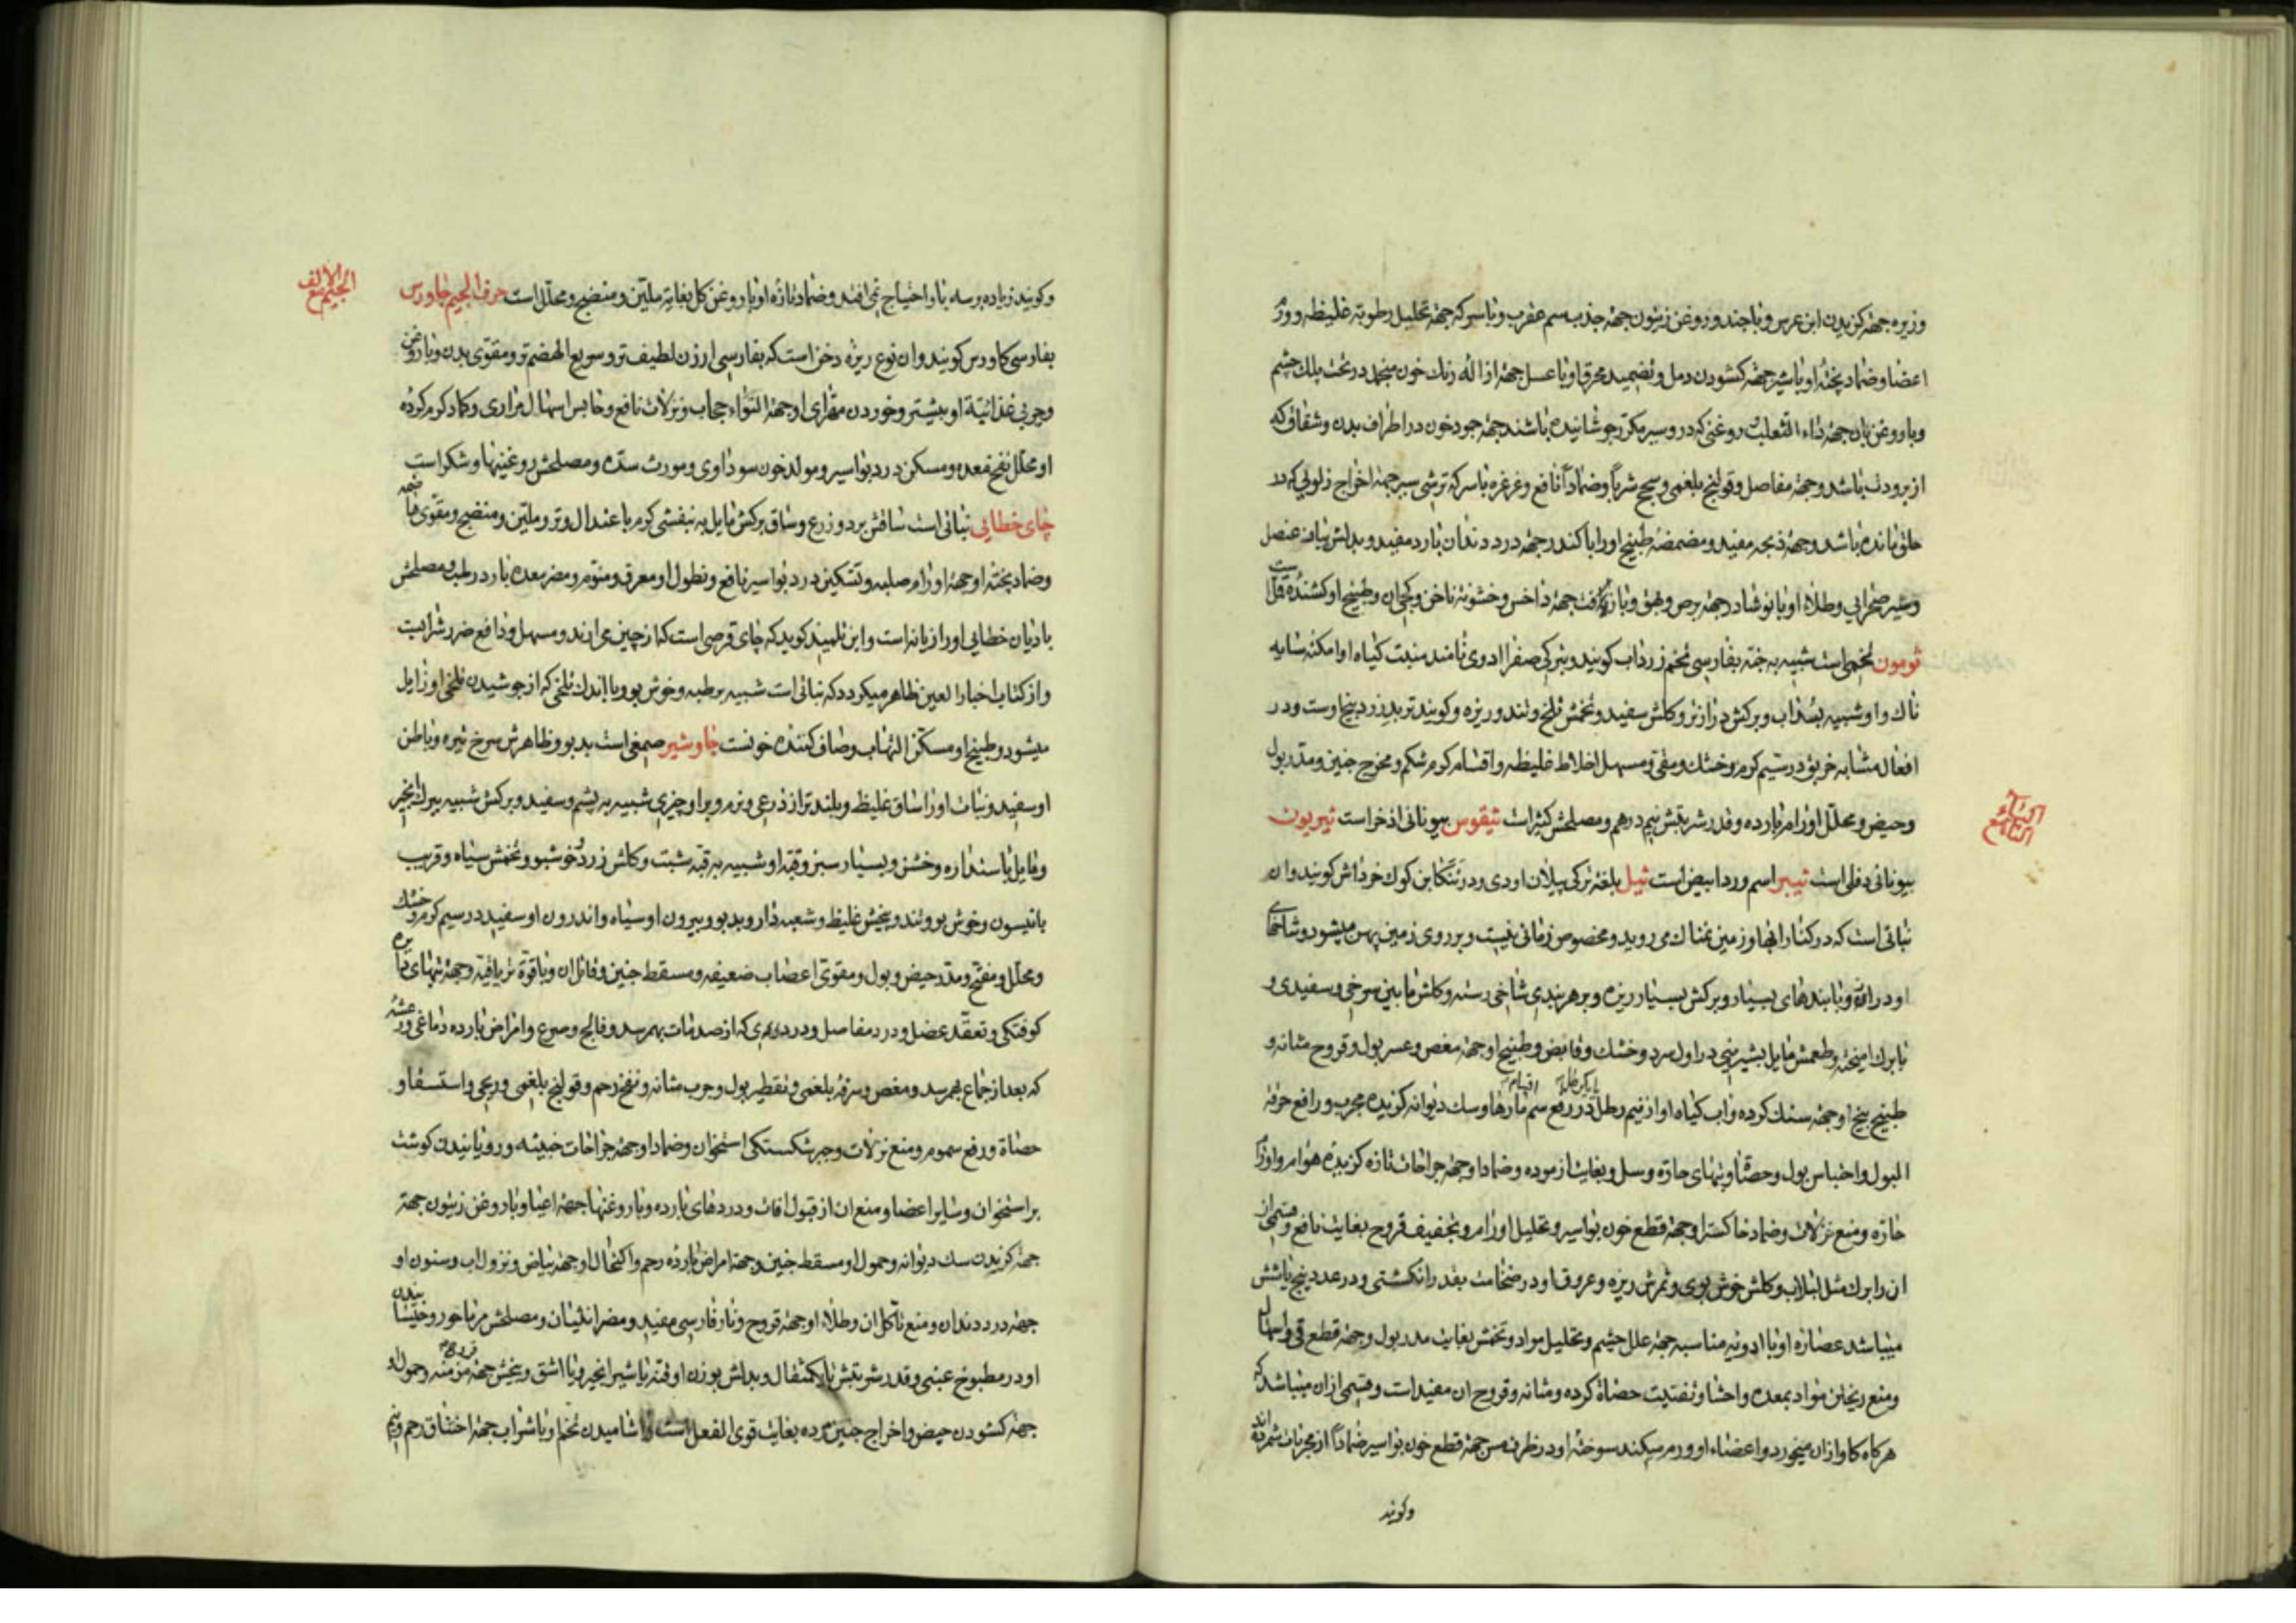 وزیره جهة کزیدن ابن عرس و با جند و روغن زیتون جهة جذب سم عقرب و با سرکه جهة تحلیل رطوبة غلیظه و ورم
اعضا و ضماد پختهٔ او با شیر جهة کشودن دمل و تضمید محرق او با عسل جهة ازالهٔ رنك خون منجمد در تحت پلك چشم
و با روغن بان جهة داء الثعلب و روغنی که در و سیر مکرّر جوشانیده باشند جهة جمود خون در اطراف بدن و شقاق که
از برودت باشد و جهة مفاصل و قولنج بلغمی و سحج شربًا و ضمادًا نافع و غرغره با سرکه ترشی سیر جهة اخراج زلویی که در
حلق مانده باشد و جهة ذبحه مفید و مضمضهٔ طبیخ او را با کندر جهة درد دندان بارد مفید و بدلش پیاز عنصل
و سیر صحرایی و طلاء او با نوشادر جهة برص و بهق و با زفت جهة داخس و خشونة ناخن و کجی ان و طبیخ او کشندهٔ قمل است
ثومون تخمی است شبیه به حبّه بفارسی تخم زرداب کویند و بترکی صفرا ادوی نامند منبت کیاه او امکنه سایه
ناك و او شبیه بسُداب و برکش درازتر و کلش سفید و تخمش تلخ و تند و ریزه و کویند تربد زرد بیخ اوست و در
افعال مشابه خربق در سیم کرم و خشك و مقیّ و مسهل اخلاط غلیظه و اقسام کرم شکم و مخرج جنین و مدر بول
و حیض و محلّل اورام بارده و قدر شربتش نیم درهم و مصلحش کثیراست ثیقوس بیونانی اذخر است ثیریون
الثاء مع الیاء
بیونانی دفلی است ثیبر اسم ورد ابیض است ثیل بلغة ترکی بیلان اودی و در تنکابن کوك خرداش کویند و ان
نباتی است که در کنار ابها و زمین نمناك می روید و مخصوص زمانی نیست و بر روی زمین پهن میشود و شاخهای
او دراز و با بندهای بسیار و برکش بسیار ریزه و بر هر بندی شاخی رسته و کلش مابین سرخی و سفیدی و
با برك امیخته و طعمش مایل بشیرینی در اول سرد و خشك و قابض و طبیخ او جهة مغص و عسر بول و قروح مثانه و
طبیخ بیخ او جهة سنك کرده و اب کیاه او از نیم رطل تا یك رطل در رفع سم اقسام مارها و سك دیوانه کزیده مجرب و رافع حرقة
البول و احتباس بول و حصاة و تبهای حارّه و سل و بغایت ازموده و ضماد او جهة جراحات تازه کزیدهٔ هوام و اورام
حارّه و منع نزلات و ضماد خاکستر او جهة قطع خون بواسیر و تحلیل اورام و تجفیف قروح بغایت نافع و قسمی از
ان را برك مثل لبلاب و کلش خوش بوی و ثمرش ریزه و عروق او در ضخامت بقدر انکشتی و در عدد پنج یا شش
میباشد عصارهٔ او با ادویه مناسبه جهة علل چشم و تحلیل مواد و تخمش بغایت مدر بول و جهة قطع قی و اسهال
و منع ریختن مواد بمعده و احشا و تفتیت حصاة کرده و مثانه و قروح ان مفید است و قسمی از ان میباشد که
هر کاه کاو از ان میخورد و اعضاء او ورم میکند سوختهٔ او در ظرف مس جهة قطع خون بواسیر ضمادًا از مجربات شمرده اند
و کویند
الجیم مع الالف
و کویند زیاده بر سه بار احتیاج نمی افتد و ضماد تازه او با روغن کل بغایة ملیّن و منضج و محلّل است حرف الجیم جاورس
بفارسی کاورس کویند و ان نوع ریزه دخن است که بفارسی ارزن لطیف تر و سریع الهضم تر و مقوّی بدن و با روغن
و چربی غذائیّة او بیشتر و خوردن مقرّای او جهة التواء حجاب و نزلات نافع و حابس اسهال مراری و کماد کرم کرده
او محلّل نفخ معده و مسکن درد بواسیر و مولد خون سوداوی و مورث سدّه و مصلحش روغنیها و شکر است
چای خطایی نباتی است ساقش بر دو ذرع و ساق برکش مایل به بنفشی کرم با عتدال و تر و ملیّن و منضج و مقوّی هاضمه
و ضماد پختهٔ او جهة اورام صلبه و تسکین درد بواسیر نافع و نطول او معرق و منوّم و مضر معده بارد رطب و مصلحش
بادیان خطایی او رازیانه است و ابن تلمیذ کوید که چای قرصی است که از چین می ارند و مسهل و دافع ضرر شرابست
و از کتاب اخبار العین ظاهر میکردد که نباتی است شبیه برطبه و خوش بو و با اندك تلخی که از جوشیدن تلخی او زایل
میشود و طبیخ او مسکّن التهاب و صاف کنندهٔ خونست جاوشیر صمغی است بدبو و ظاهرش سرخ تیره و باطن
او سفید و نبات او را ساق غلیظ و بلندتر از ذرعی و نرم و بر او چیزی شبیه به پشم و سفید و برکش شبیه ببرك انجیر
و مایل باستداره و خشن و بسیار سبز و قبّه او شبیه به قبّه شبت و کلش زرد و خوشبو و تخمش سیاه و قریب
بانیسون و خوش بو و تند و بیخش غلیظ و شعبه دار و بدبو و بیرون او سیاه و اندرون او سفید در سیم کرم و خشك
و محلّل و مفتّح و مدر حیض و بول و مقوی اعصاب ضعیفه و مسقط جنین و قاتل ان و با قوّة تریاقیّه و جهة تبهای دایره
کوفتکی و تعقّد عضل و درد مفاصل و درد که از صدمات بهم رسد و فالج و صرع و امراض بارده دماغی و رعشهٔ
که بعد از جماع بهم رسد و مغص و سرفهٔ بلغمی و تقطیر بول و جرب مثانه و نفخ رحم و قولنج بلغمی و ریحی و استسقا و
حصاة و رفع سموم و منع نزلات و جبر شکستکی استخوان و ضماد او جهة جراحات خبیثه و رویانیدن کوشت
بر استخوان و سایر اعضا و منع ان از قبول افات و دردهای بارده و با روغنها جهة اعیا و با روغن زیتون جهة
جهة کزیدن سك دیوانه و حمول او مسقط جنین و جهة امراض بارده رحم و اکتحال او جهة بیاض و نزول اب و سنون او
جهة درد دندان و منع تأکل ان و طلاء او جهة قروح و نار فارسی مفید و مضر انثیان و مصلحش مرماحور و خیسانیدن
او در مطبوخ عنبی و قدر شربتش تا یکمثقال و بدلش بوزن او قنّه با شیر انجیر و یا اشق و بیخش جهة قروح مزمنه و حمول او
جهة کشودن حیض و اخراج جنین مرده بغایت قوی الفعل است و اشامیدن تخم او با شراب جهة اختناق رحم و بیخ